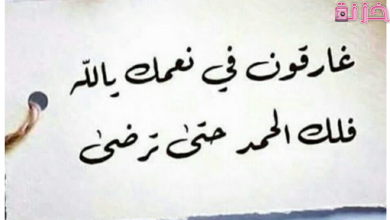 خزنة
غارقون في نعمك يالله
فلك الحمد حتى ترضى